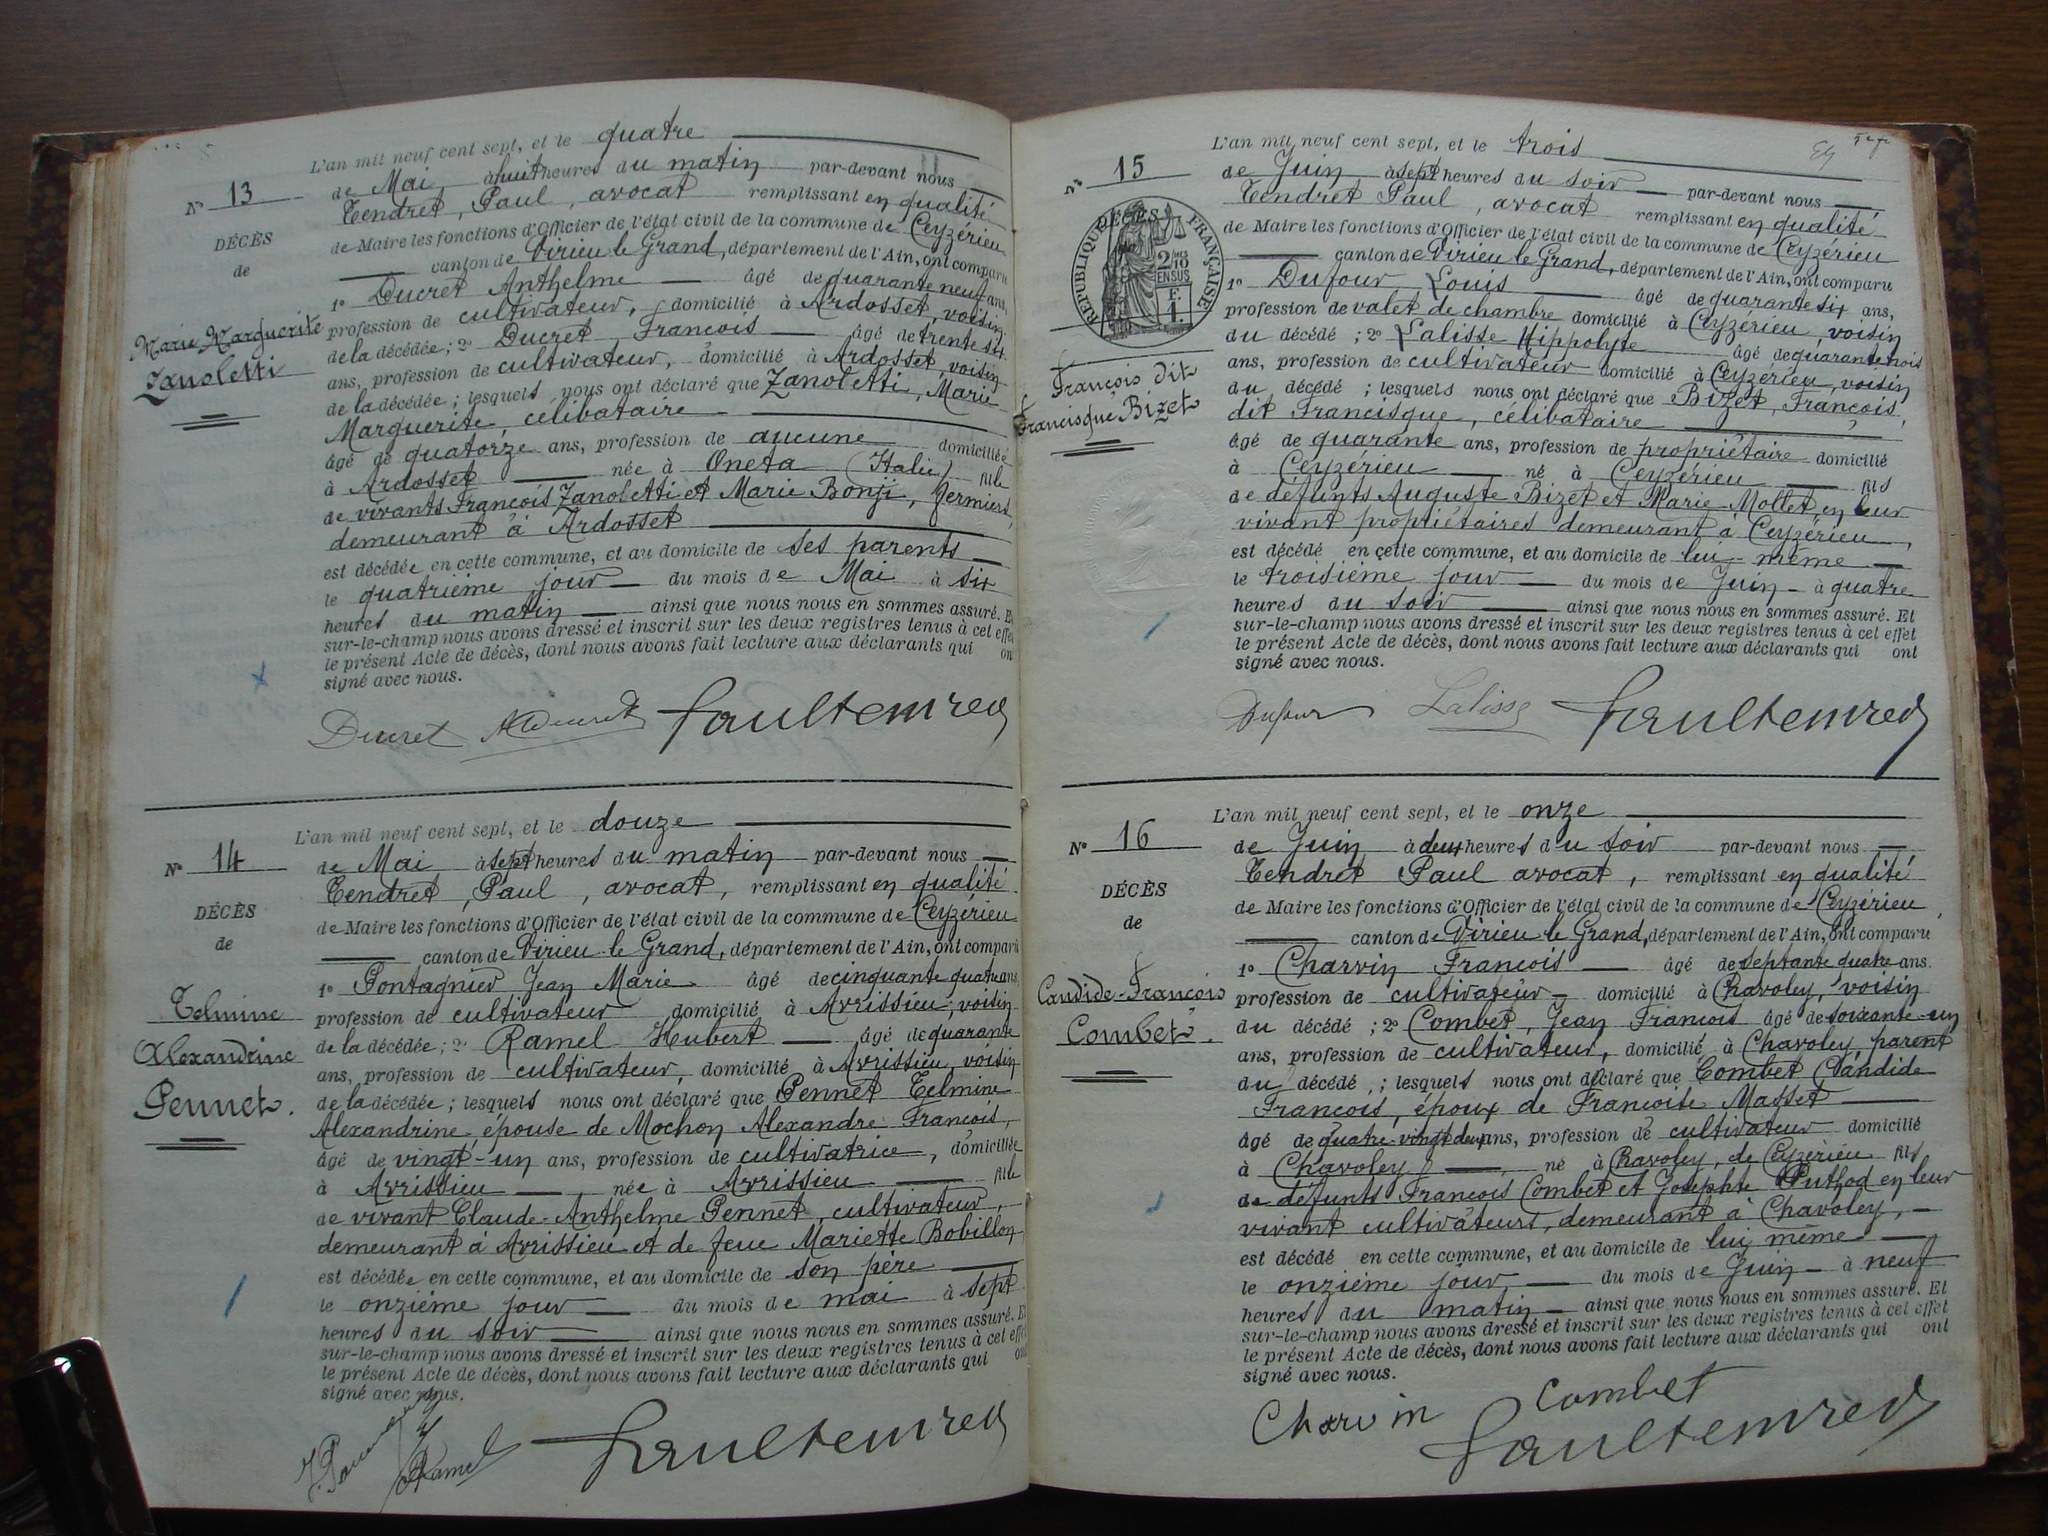 L'an mil neuf cent sept, et le quatre
N° 13
de Mai à huit heures du matin par-devant nous
Tendret, Paul, avocat remplissant en qualité
DÉCÈS
de Maire les fonctions d'Officier de l'état civil de la commune de Ceyzérieu
de
canton de Virieu le Grand, département de l'Ain, ont comparu
1° Ducret Anthelme âgé de quarante neuf ans,
profession de cultivateur, domicilié à Ardosset, voisin
Marie Marguerite
Zanoletti
de la décédée ; 2° Ducret, François âgé de trente six
ans, profession de cultivateur, domicilié à Ardosset, voisin
de la décédée ; lesquels nous ont déclaré que Zanoletti, Marie
Marguerite, célibataire
âgé de quatorze ans, profession de aucune domiciliée
à Ardosset née à Oneta (Italie) fille
de vivants François Zanoletti et Marie Bonji, fermiers,
demeurant à Ardosset
est décédée en cette commune, et au domicile de ses parents
le quatrième jour du mois de Mai à six
heures du matin ainsi que nous nous en sommes assuré. Et
sur-le-champ nous avons dressé et inscrit sur les deux registres tenus à cet effet
le présent Acte de décès, dont nous avons fait lecture aux déclarants qui ont
signé avec nous.
Ducret
L'an mil neuf cent sept, et le douze
N° 14
de Mai à sept heures du matin par-devant nous
Tendret, Paul, avocat, remplissant en qualité
DÉCÈS
de Maire les fonctions d'Officier de l'état civil de la commune de Ceyzérieu
de
canton de Virieu le Grand, département de l'Ain, ont comparu
1° Pontagnier Jean Marie âgé de cinquante quatre ans,
profession de cultivateur domicilié à Avrissieu, voisin
Telmine
Alexandrine
Pennet.
de la décédée ; 2° Ramel Hubert âgé de quarante
ans, profession de cultivateur, domicilié à Avrissieu, voisin
de la décédée ; lesquels nous ont déclaré que Pennet Telmine
Alexandrine, épouse de Mochon Alexandre François,
âgé de vingt-un ans, profession de cultivatrice, domiciliée
à Avrissieu née à Avrissieu fille
de vivant Claude-Anthelme Pennet, cultivateur,
demeurant à Avrissieu et de feue Mariette Bobillon
est décédée en cette commune, et au domicile de son père
le onzième jour du mois de mai à sept
heures du soir ainsi que nous nous en sommes assuré. Et
sur-le-champ nous avons dressé et inscrit sur les deux registres tenus à cet effet
le présent Acte de décès, dont nous avons fait lecture aux déclarants qui ont
signé avec nous.
Ramel
L'an mil neuf cent sept, et le trois
N° 15
de Juin à sept heures du soir par-devant nous
Tendret Paul, avocat remplissant en qualité
DÉCÈS
RÉPUBLIQUE FRANÇAISE
2/10 EN SUS
de Maire les fonctions d'Officier de l'état civil de la commune de Ceyzérieu
canton de Virieu le Grand, département de l'Ain, ont comparu
1° Dufour Louis âgé de quarante six ans,
profession de valet de chambre domicilié à Ceyzérieu, voisin
du décédé ; 2° Lalisse Hippolyte âgé de quarante trois
François dit
Francisque Bizet
ans, profession de cultivateur domicilié à Ceyzérieu, voisin
du décédé ; lesquels nous ont déclaré que Bizet, François,
dit Francisque, célibataire
âgé de quarante ans, profession de propriétaire domicilié
à Ceyzérieu né à Ceyzérieu fils
de défunts Auguste Bizet et Marie Mollet, en leur
vivant propriétaires demeurant à Ceyzérieu,
est décédé en cette commune, et au domicile de lui-même
le troisième jour du mois de Juin à quatre
heures du soir ainsi que nous nous en sommes assuré. Et
sur-le-champ nous avons dressé et inscrit sur les deux registres tenus à cet effet
le présent Acte de décès, dont nous avons fait lecture aux déclarants qui ont
signé avec nous.
Dufour Lalisse
L'an mil neuf cent sept, et le onze
N° 16
de Juin à deux heures du soir par-devant nous
Tendret Paul avocat, remplissant en qualité
DÉCÈS
de Maire les fonctions d'Officier de l'état civil de la commune de Ceyzérieu,
de
canton de Virieu le Grand, département de l'Ain, ont comparu
1° Charvin François âgé de septante quatre ans.
Candide-François
Combet.
profession de cultivateur domicilié à Chavoley, voisin
du décédé ; 2° Combet, Jean François âgé de soixante-un
ans, profession de cultivateur, domicilié à Chavoley, parent
du décédé ; lesquels nous ont déclaré que Combet Candide
François, époux de Françoise Masset
âgé de quatre-vingt deux ans, profession de cultivateur domicilié
à Chavoley, né à Chavoley, de Ceyzérieu fils
de défunts François Combet et Josephte Puthod en leur
vivant cultivateurs, demeurant à Chavoley,
est décédé en cette commune, et au domicile de lui même
le onzième jour du mois de Juin à neuf
heures du matin ainsi que nous nous en sommes assuré. Et
sur-le-champ nous avons dressé et inscrit sur les deux registres tenus à cet effet
le présent Acte de décès, dont nous avons fait lecture aux déclarants qui ont
signé avec nous.
Charvin Combet